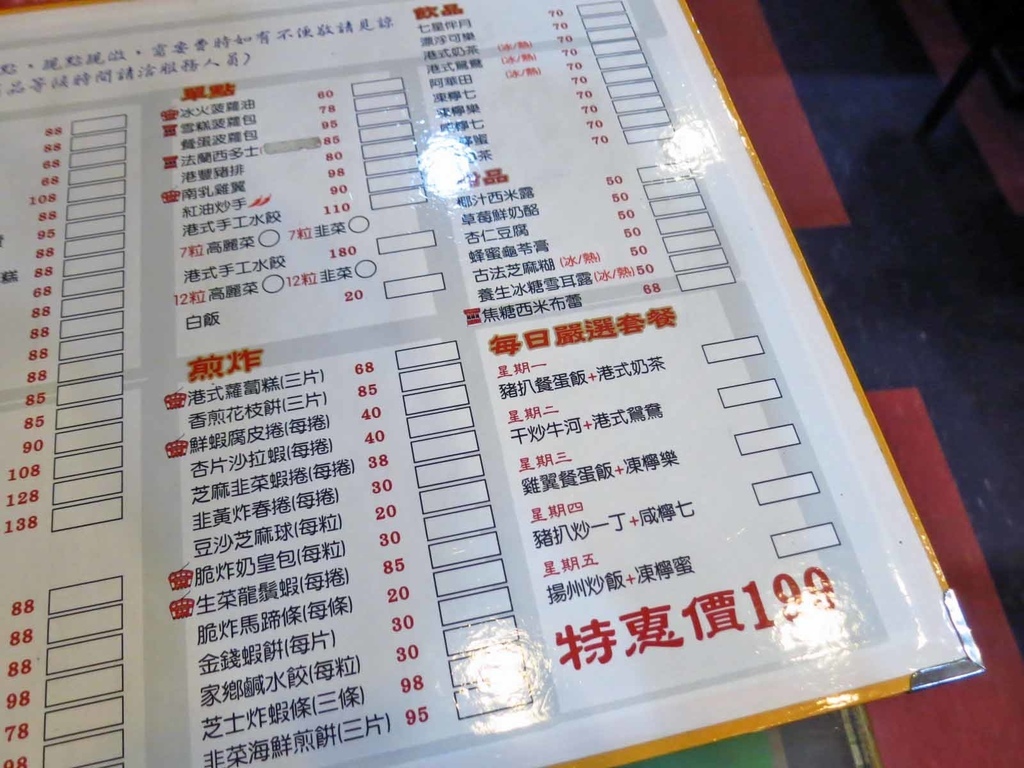 點，現點現做，需要費時如有不便敬請見諒
品等候時間請洽服務人員）
88
88
68
68
108
88
95
糕 88
68
88
88
88
85
85
90
108
128
138
88
88
88
98
78
98
單點
冰火菠蘿油 60
雪糕菠蘿包 78
餐蛋菠蘿包 95
法蘭西多士 85
港豐豬排 80
南乳雞翼 98
紅油炒手 90
港式手工水餃 110
7粒高麗菜 7粒韭菜
港式手工水餃 180
12粒高麗菜 12粒韭菜
白飯 20
煎炸
港式蘿蔔糕(三片) 68
香煎花枝餅(三片) 85
鮮蝦腐皮捲(每捲) 40
杏片沙拉蝦(每捲) 40
芝麻韭菜蝦捲(每捲) 38
韭黃炸春捲(每捲) 30
豆沙芝麻球(每粒) 20
脆炸奶皇包(每粒) 30
生菜龍鬚蝦(每捲) 85
脆炸馬蹄條(每條) 20
金錢蝦餅(每片) 30
家鄉鹹水餃(每粒) 30
芝士炸蝦條(三條) 98
韭菜海鮮煎餅(三片) 95
飲品
七星伴月 70
漂浮可樂 70
港式奶茶 (冰/熱) 70
港式鴛鴦 (冰/熱) 70
阿華田 (冰/熱) 70
凍檸七 70
凍檸樂 70
檸七 70
檸蜜 70
茶 70
品
椰汁西米露 50
草莓鮮奶酪 50
杏仁豆腐 50
蜂蜜龜苓膏 50
古法芝麻糊(冰/熱) 50
養生冰糖雪耳露(冰/熱) 50
焦糖西米布蕾 68
每日嚴選套餐
星期一
豬扒餐蛋飯+港式奶茶
星期二
干炒牛河+港式鴛鴦
星期三
雞翼餐蛋飯+凍檸樂
星期四
豬扒炒一丁+咸檸七
星期五
揚州炒飯+凍檸蜜
特惠價199